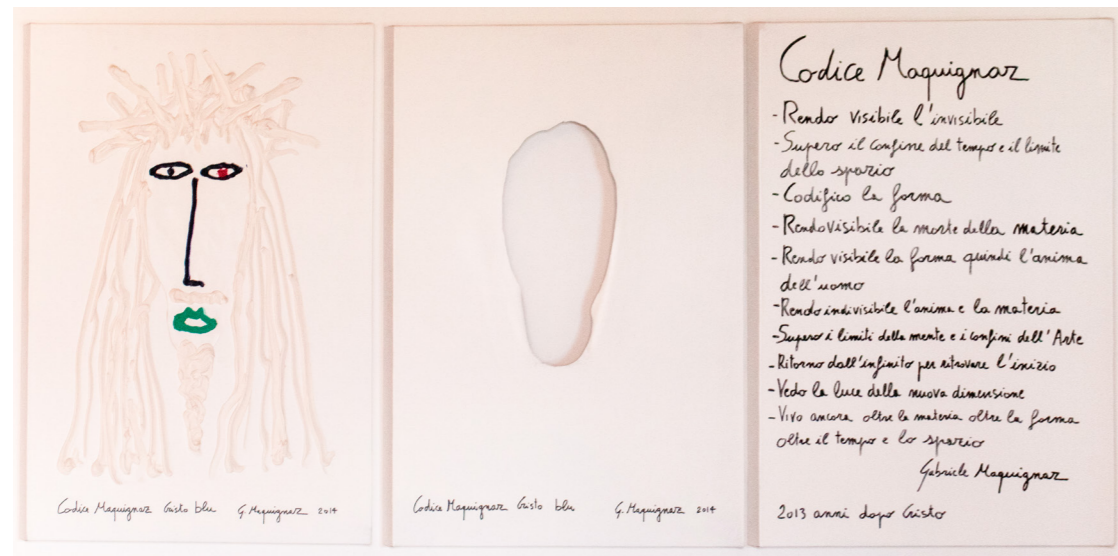 Codice Maquignaz Cristo blu G. Maquignaz 2014
Codice Maquignaz Cristo blu G. Maquignaz 2014
Codice Maquignaz
- Rendo visibile l'invisibile
- Supero il confine del tempo e il limite
dello spazio
- Codifico la forma
- Rendo visibile la morte della materia
- Rendo visibile la forma quindi l'anima
dell'uomo
- Rendo indivisibile l'anima e la materia
- Supero i limiti della mente e i confini dell'Arte
- Ritorno dall'infinito per ritrovare l'inizio
- Vedo la luce della nuova dimensione
- Vivo ancora oltre la materia oltre la forma
oltre il tempo e lo spazio
Gabriele Maquignaz
2013 anni dopo Cristo